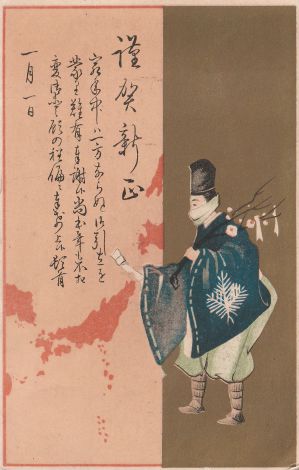 謹賀新正
客年中ハ一方ならぬ御引立を
蒙り難有奉謝候尚本年不相
変御愛顧の程偏ニ奉上候
一月一日